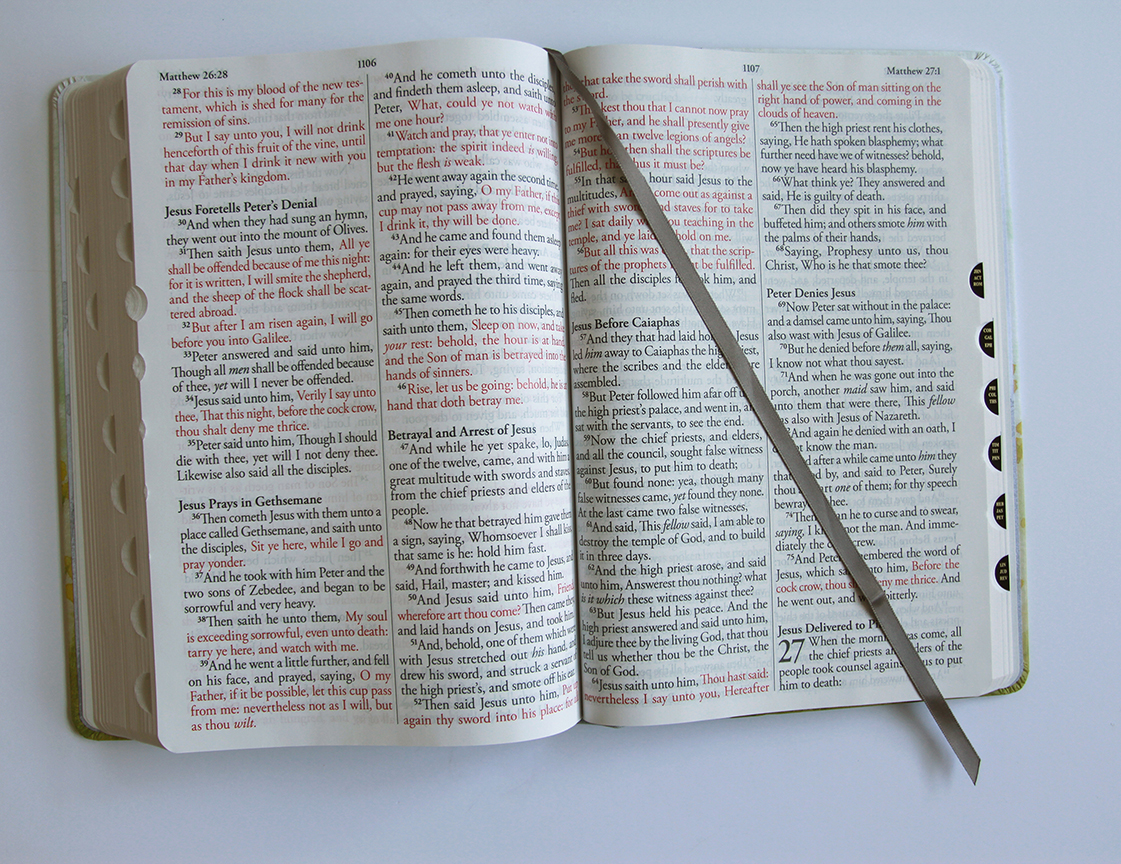 Matthew 26:28
1106
28For this is my blood of the new tes-
tament, which is shed for many for the
remission of sins.
29But I say unto you, I will not drink
henceforth of this fruit of the vine, until
that day when I drink it new with you
in my Father's kingdom.
Jesus Foretells Peter's Denial
30And when they had sung an hymn,
they went out into the mount of Olives.
31Then saith Jesus unto them, All ye
shall be offended because of me this night:
for it is written, I will smite the shepherd,
and the sheep of the flock shall be scat-
tered abroad.
32But after I am risen again, I will go
before you into Galilee.
33Peter answered and said unto him,
Though all men shall be offended because
of thee, yet will I never be offended.
34Jesus said unto him, Verily I say unto
thee, That this night, before the cock crow,
thou shalt deny me thrice.
35Peter said unto him, Though I should
die with thee, yet will I not deny thee.
Likewise also said all the disciples.
Jesus Prays in Gethsemane
36Then cometh Jesus with them unto a
place called Gethsemane, and saith unto
the disciples, Sit ye here, while I go and
pray yonder.
37And he took with him Peter and the
two sons of Zebedee, and began to be
sorrowful and very heavy.
38Then saith he unto them, My soul
is exceeding sorrowful, even unto death:
tarry ye here, and watch with me.
39And he went a little further, and fell
on his face, and prayed, saying, O my
Father, if it be possible, let this cup pass
from me: nevertheless not as I will, but
as thou wilt.
40And he cometh unto the
and findeth them asleep, and saith
Peter, What, could ye not watch
me one hour?
41Watch and pray, that ye enter not
temptation: the spirit indeed is
but the flesh is weak.
42He went away again the second time,
and prayed, saying, O my Father, if
cup may not pass away from me,
I drink it, thy will be done.
43And he came and found them asleep
again: for their eyes were heavy.
44And he left them, and went away
again, and prayed the third time, saying
the same words.
45Then cometh he to his disciples, and
saith unto them, Sleep on now, and
your rest: behold, the hour is at
and the Son of man is betrayed into
hands of sinners.
46Rise, let us be going: behold, he is
hand that doth betray me.
Betrayal and Arrest of Jesus
47And while he yet spake, lo, Judas,
one of the twelve, came, and with him
great multitude with swords and
from the chief priests and elders of the
people.
48Now he that betrayed him gave them
a sign, saying, Whomsoever I shall
that same is he: hold him fast.
49And forthwith he came to Jesus,
said, Hail, master; and kissed him.
50And Jesus said unto him,
wherefore art thou come? Then came they
and laid hands on Jesus, and took him.
51And, behold, one of them which were
with Jesus stretched out his hand,
drew his sword, and struck a servant
the high priest's, and smote off his
52Then said Jesus unto him,
again thy sword into his place: for
1107
Matthew 27:1
that take the sword shall perish with
the
53 thou that I cannot now pray
to my Father, and he shall presently give
me more than twelve legions of angels?
54But then shall the scriptures be
fulfilled, it must be?
55In that hour said Jesus to the
multitudes, come out as against a
thief with and staves for to take
me? I sat daily teaching in the
temple, and ye hold on me.
56But all this was that the scrip-
tures of the prophets be fulfilled.
Then all the disciples him, and
fled.
Jesus Before Caiaphas
57And they that had laid Jesus
led him away to Caiaphas the high priest,
where the scribes and the elders were
assembled.
58But Peter followed him afar off
the high priest's palace, and went in,
sat with the servants, to see the end.
59Now the chief priests, and elders,
and all the council, sought false witness
against Jesus, to put him to death;
60But found none: yea, though many
false witnesses came, yet found they none.
At the last came two false witnesses,
61And said, This fellow said, I am able to
destroy the temple of God, and to build
it in three days.
62And the high priest arose, and said
unto him, Answerest thou nothing? what
is it which these witness against thee?
63But Jesus held his peace. And the
high priest answered and said unto him,
I adjure thee by the living God, that thou
tell us whether thou be the Christ, the
Son of God.
64Jesus saith unto him, Thou hast said:
nevertheless I say unto you, Hereafter
shall ye see the Son of man sitting on the
right hand of power, and coming in the
clouds of heaven.
65Then the high priest rent his clothes,
saying, He hath spoken blasphemy; what
further need have we of witnesses? behold,
now ye have heard his blasphemy.
66What think ye? They answered and
said, He is guilty of death.
67Then did they spit in his face, and
buffeted him; and others smote him with
the palms of their hands,
68Saying, Prophesy unto us, thou
Christ, Who is he that smote thee?
Peter Denies Jesus
69Now Peter sat without in the palace:
and a damsel came unto him, saying, Thou
also wast with Jesus of Galilee.
70But he denied before them all, saying,
I know not what thou sayest.
71And when he was gone out into the
porch, another maid saw him, and said
unto them that were there, This fellow
was also with Jesus of Nazareth.
And again he denied with an oath, I
not know the man.
And after a while came unto him they
that by, and said to Peter, Surely
thou art one of them; for thy speech
bewray thee.
74Then he to curse and to swear,
saying, I not the man. And imme-
diately the crew.
75And Peter remembered the word of
Jesus, which said unto him, Before the
cock crow, thou deny me thrice. And
he went out, and bitterly.
Jesus Delivered to
27 When the morning was come, all
the chief priests and elders of the
people took counsel against Jesus to put
him to death:
JHN
ACT
ROM
COR
GAL
EPH
PHI
COL
THE
TIM
TIT
PHN
HEB
JAS
PET
JHN
JUD
REV